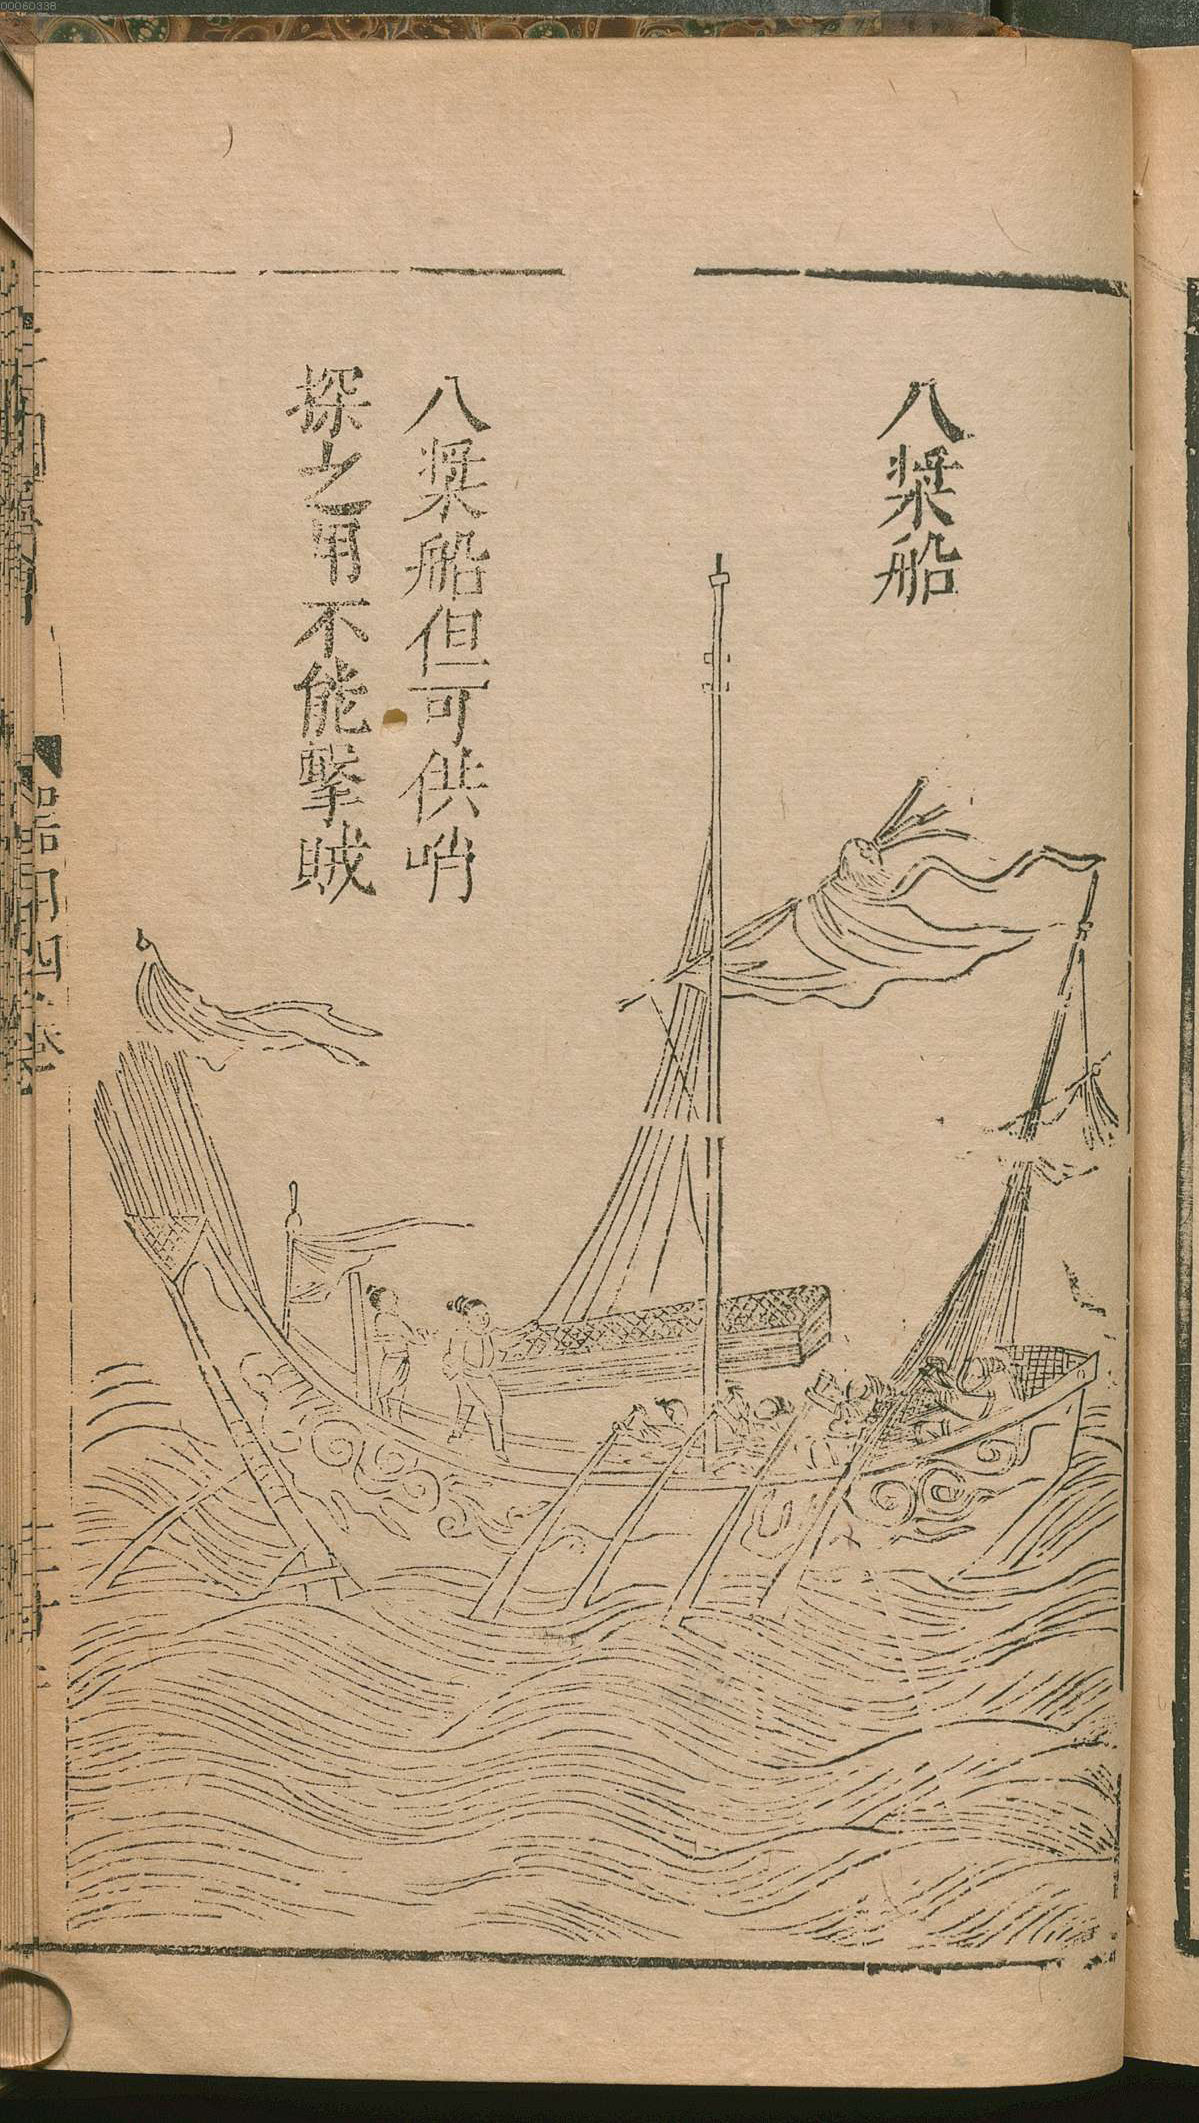 00060338
八槳船
八槳船但可供哨
探之用不能擊賊
器用四卷